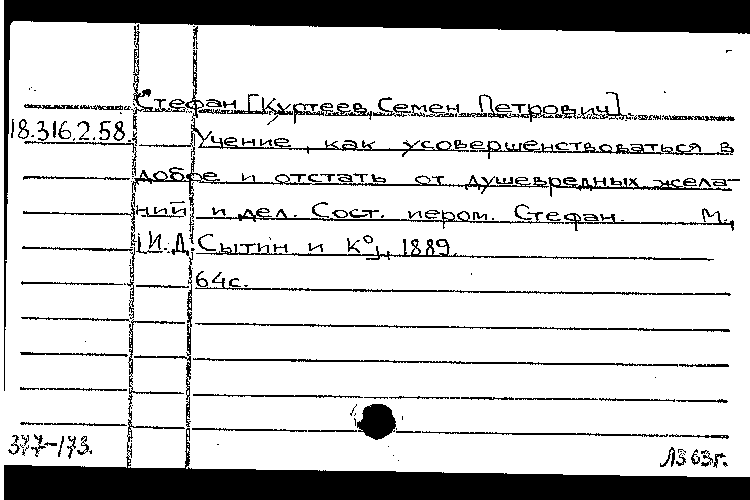 Стефан [Куртеев, Семен Петрович]
18.316.2.58. Учение, как усовершенствоваться в
добре и отстать от душевредных жела-
ний и дел. Сост. иером. Стефан. М.,
[И.Д. Сытин и К°], 1889.
64с.
377-173. ЛЗ 63г.